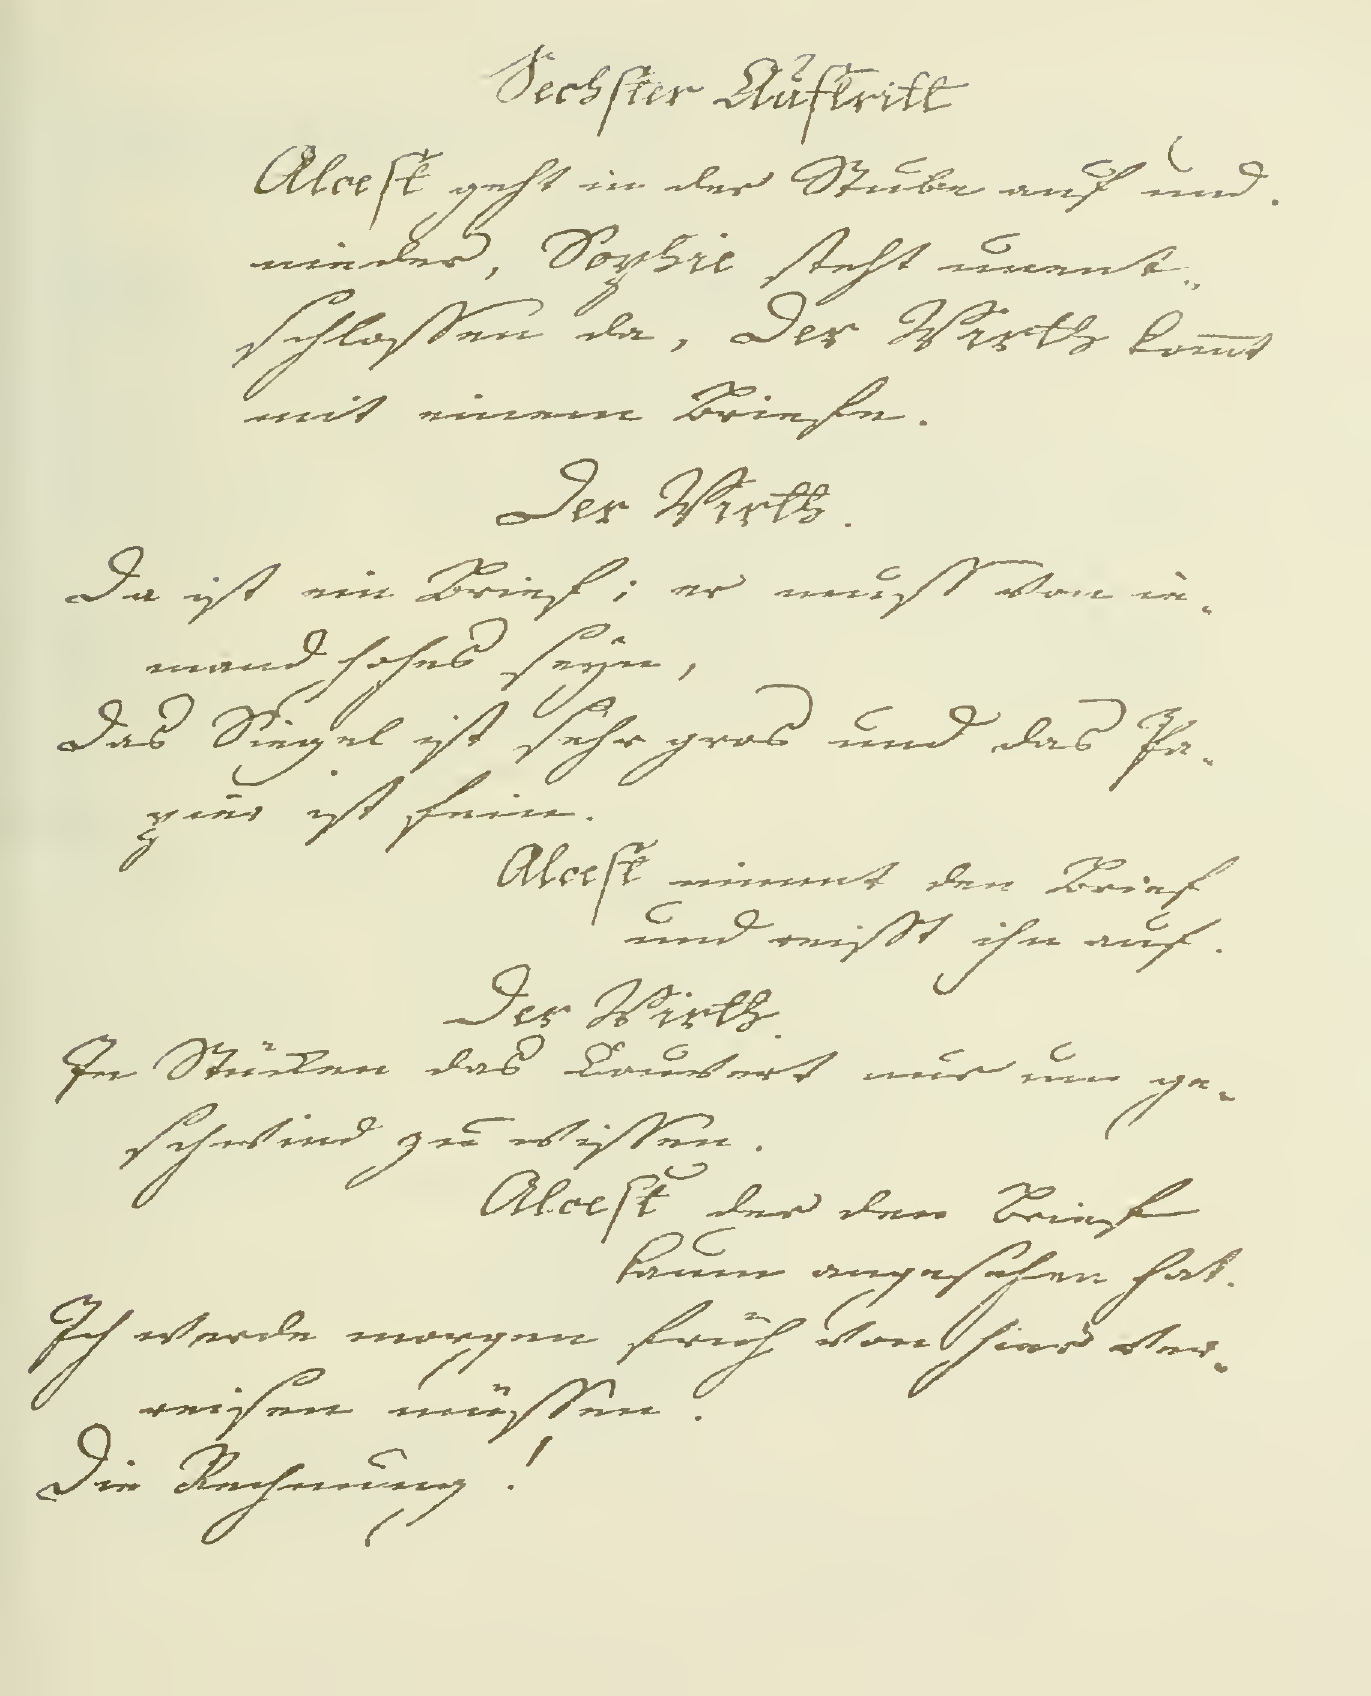 Sechster Auftritt
Alcest geht in der Stube auf und.
nieder, Sophie steht unent-
schlossen da, Der Wirth kom̄t
mit einem Briefe.
Der Wirth.
Da ist ein Brief; er muss von ie-
mand hohes seyn,
Das Siegel ist sehr gros und das Pa-
pier ist fein.
Alcest nimmt den Brief
und reisst ihn auf.
Der Wirth.
In Stücken das Couvert nur um ge-
schwind zu wissen.
Alcest der den Brief
kaum angesehen hat.
Ich werde morgen früh von hier ver-
reisen müssen.
Die Rechnung!